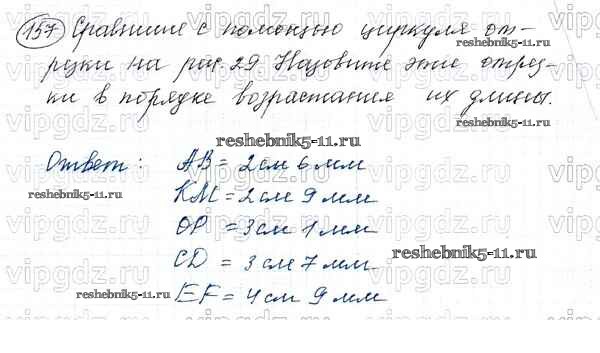 157 Сравните с помощью циркуля от-
резки на рис. 29 Назовите эти отрез-
ки в порядке возрастания их длины.
Ответ: AB = 2 см 6 мм
KM = 2 см 9 мм
OP = 3 см 1 мм
CD = 3 см 7 мм
EF = 4 см 9 мм
reshebnik5-11.ru
reshebnik5-11.ru
reshebnik5-11.ru
reshebnik5-11.ru
reshebnik5-11.ru
reshebnik5-11.ru
reshebnik5-11.ru
vipgdz.ru